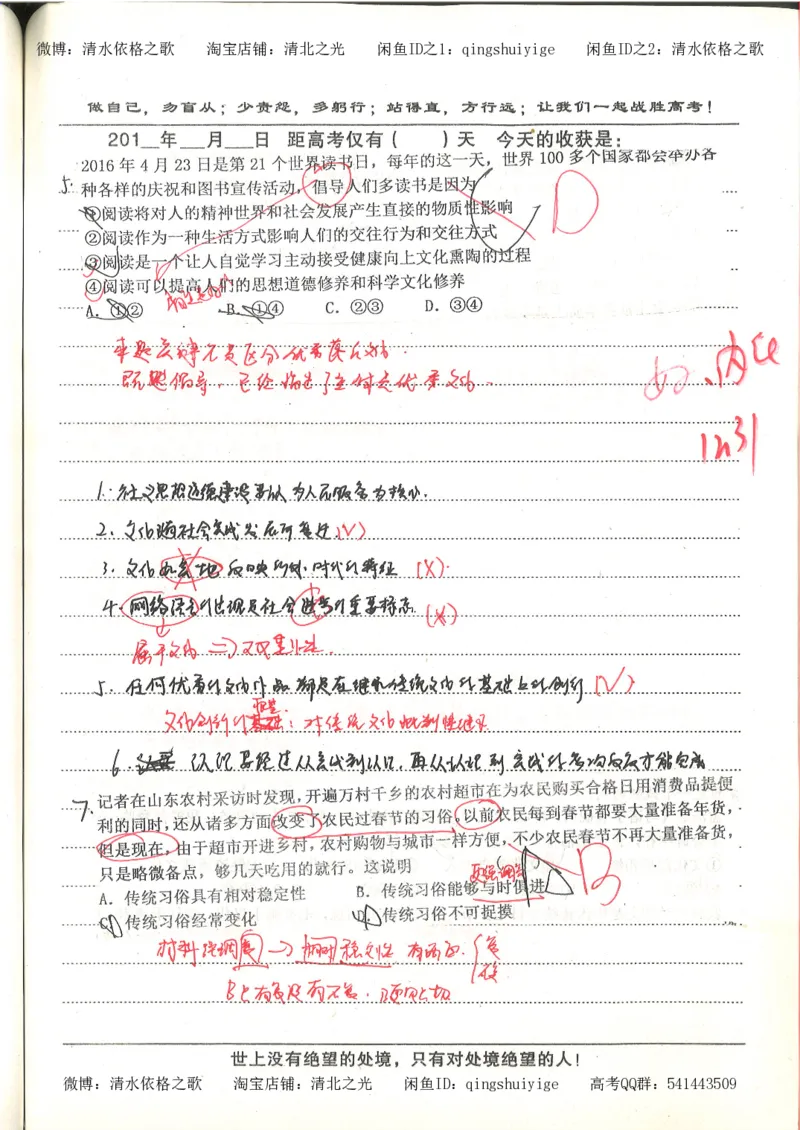 微博：清水依格之歌 淘宝店铺：清北之光 闲鱼ID之1：qingshuiyige 闲鱼ID之2：清水依格之歌
做自己，勿盲从；少责怨，多躬行；站得直，方行远；让我们一起战胜高考！
201__年___月___日 距高考仅有（ ）天 今天的收获是：
2016年4月23日是第21个世界读书日，每年的这一天，世界100多个国家都会举办各
5. 种各样的庆祝和图书宣传活动，倡导人们多读书是因为
D
①阅读将对人的精神世界和社会发展产生直接的物质性影响
②阅读作为一种生活方式影响人们的交往行为和交往方式
③阅读是一个让人自觉学习主动接受健康向上文化熏陶的过程
④阅读可以提高人们的思想道德修养和科学文化修养
A. ①② B. ①④ C. ②③ D. ③④
既题倡导，已经指出了
内化
1231
1. 社会主义思想道德建设要以为人民服务为核心.
2. 文化随社会实践发展而变迁(√)
3. 文化如实地反映的时代特征 (×).
4. 网络的出现是社会进步的重要标志 (×)
属于文化 ⇒
5. 任何优秀的文化作品都是在继承传统文化的基础上的创新 (√)
文化创新的 ：对传统文化批判性继承
6. 认识要经过从实践到认识，再从认识到实践的多次反复才能完成
7. 记者在山东农村采访时发现，开遍万村千乡的农村超市在为农民购买合格日用消费品提便
利的同时，还从诸多方面改变了农民过春节的习俗，以前农民每到春节都要大量准备年货，
但是现在，由于超市开进乡村，农村购物与城市一样方便，不少农民春节不再大量准备货，
只是略微备点，够几天吃用的就行。这说明
B
A. 传统习俗具有相对稳定性 B. 传统习俗能够与时俱进
C. 传统习俗经常变化 D. 传统习俗不可捉摸
材料强调 → 相对稳定性 有两面.
世上没有绝望的处境，只有对处境绝望的人！
微博：清水依格之歌 淘宝店铺：清北之光 闲鱼ID：qingshuiyige 高考QQ群：541443509